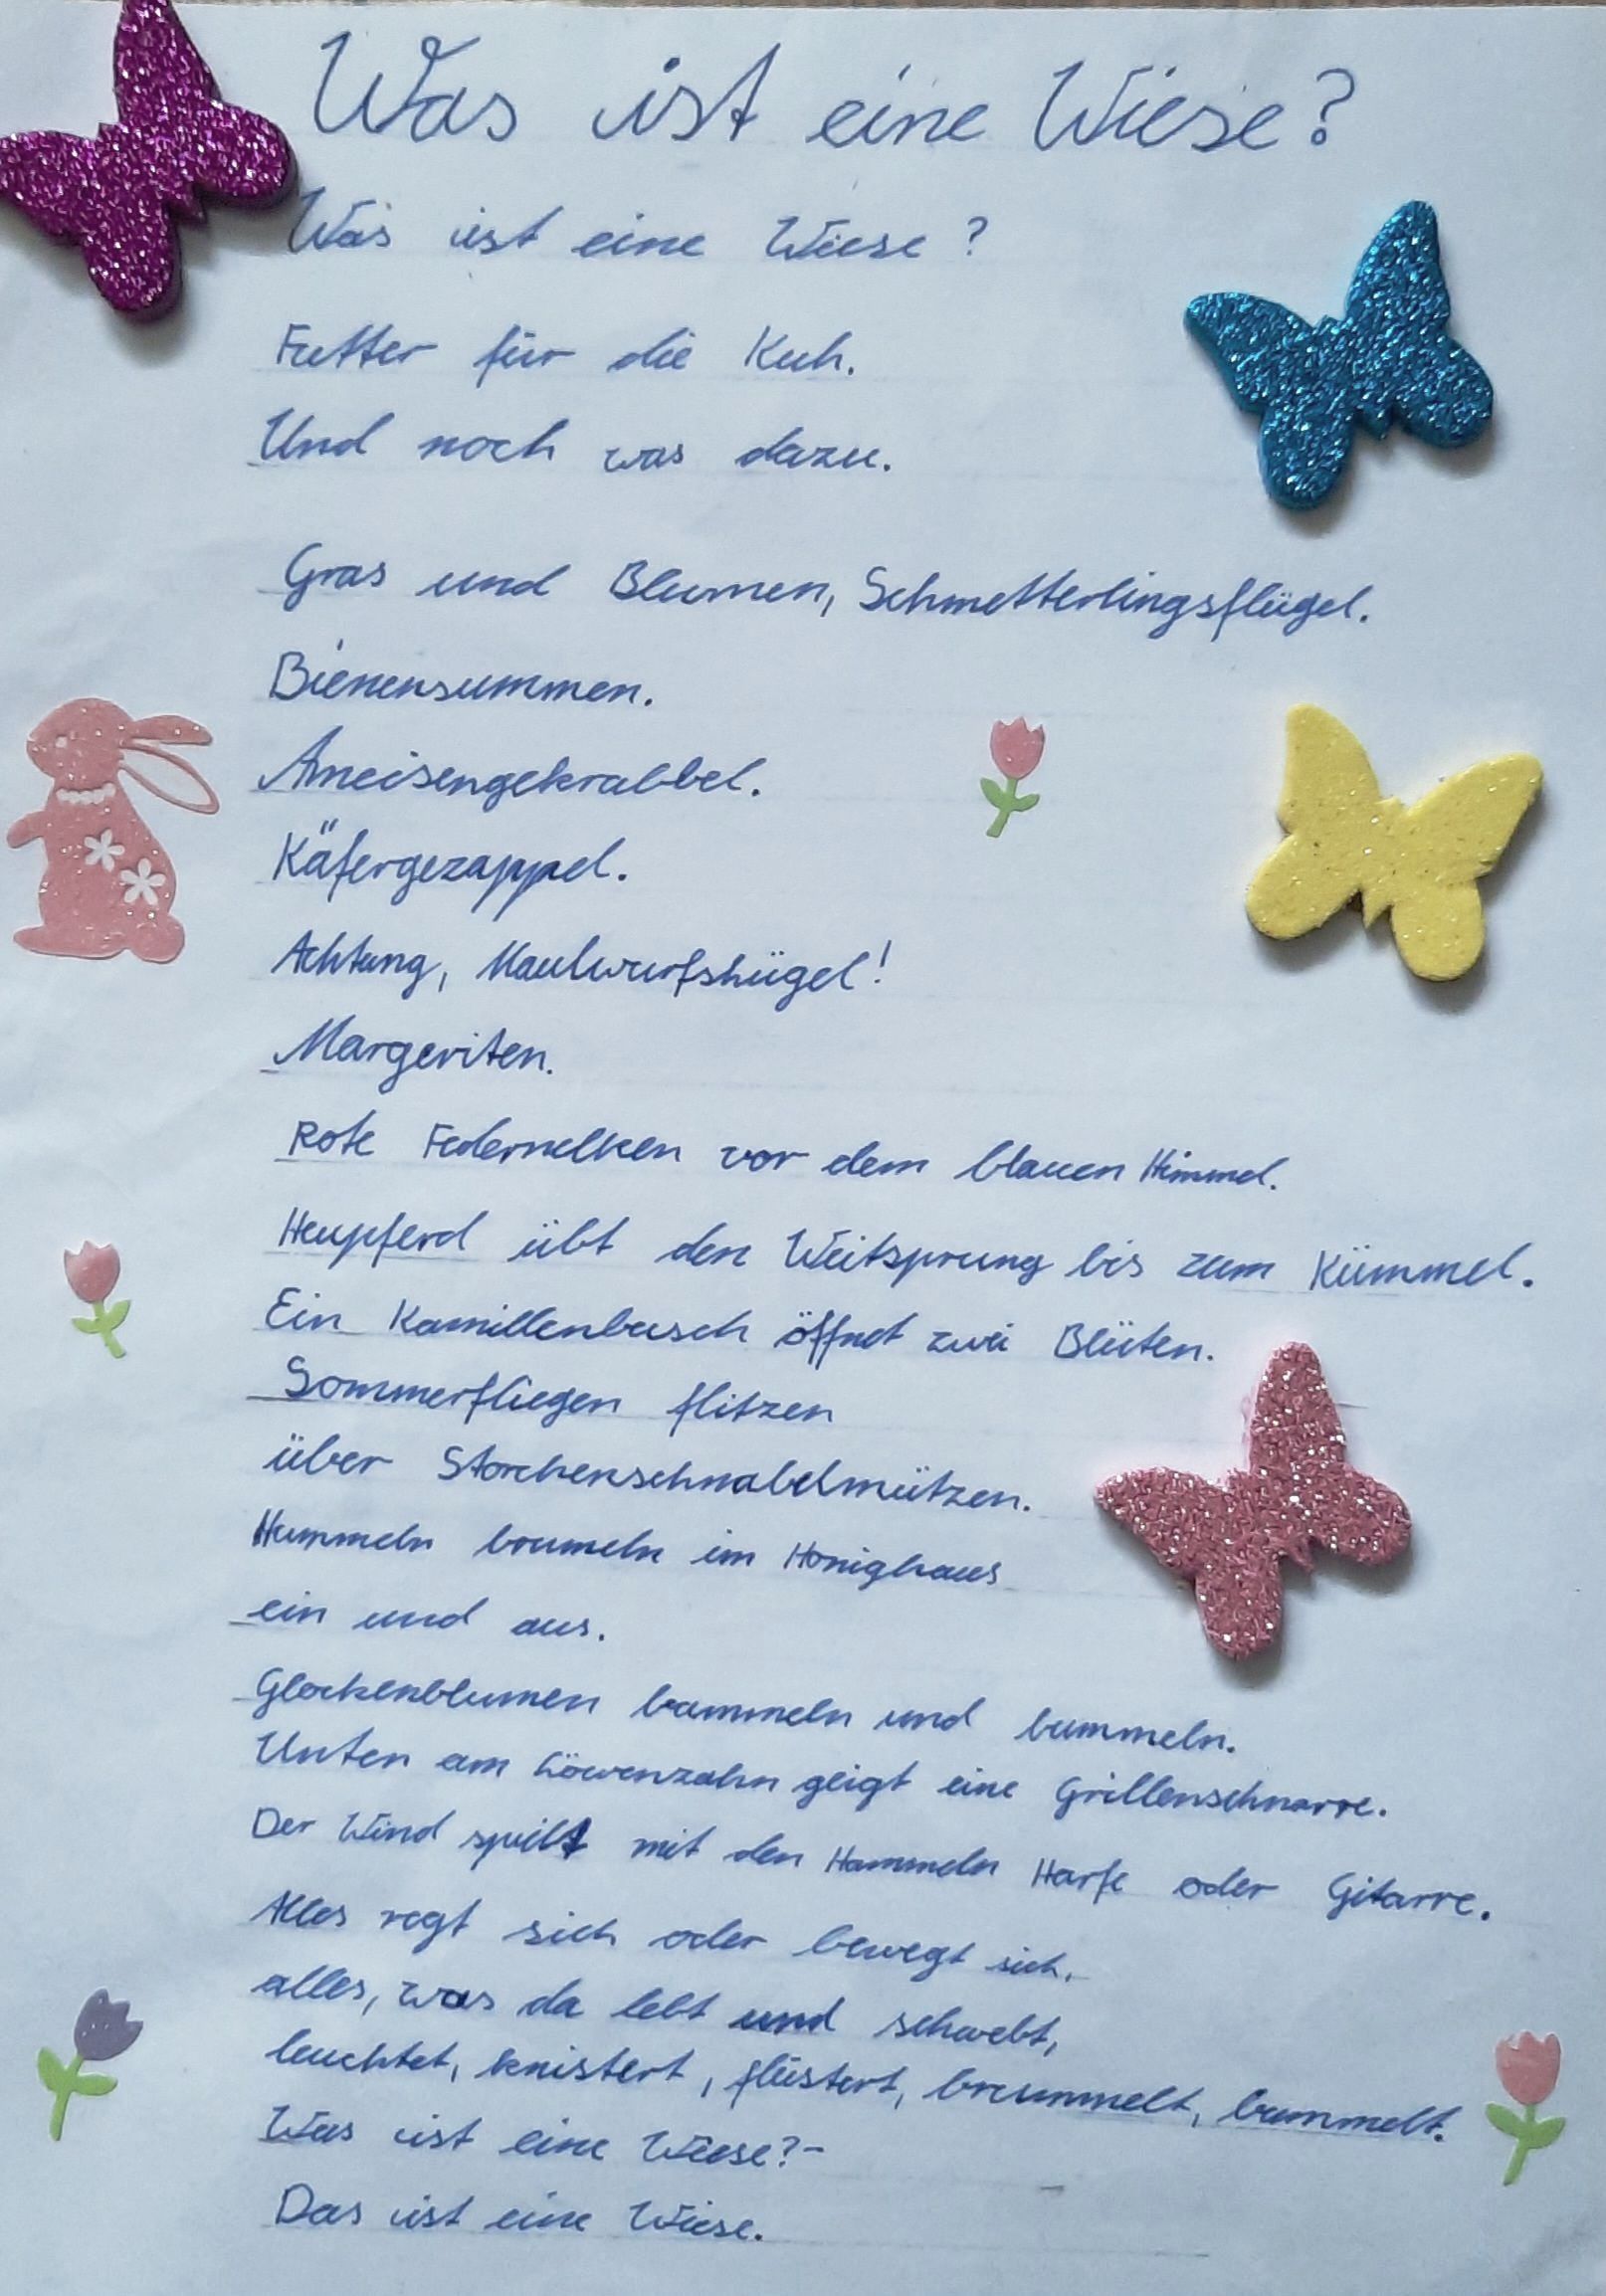 Was ist eine Wiese?
Was ist eine Wiese?
Futter für die Kuh.
Und noch was dazu.
Gras und Blumen, Schmetterlingsflügel.
Bienensummen.
Ameisengekrabbel.
Käfergezappel.
Achtung, Maulwurfshügel!
Margeriten.
Rote Federnelken vor dem blauen Himmel.
Heupferd übt den Weitsprung bis zum Kümmel.
Ein Kamillenbusch öffnet zwei Blüten.
Sommerfliegen flitzen
über Storchenschnabelmützen.
Hummeln brumeln im Honighaus
ein und aus.
Glockenblumen bammeln und bummeln.
Unten am Löwenzahn geigt eine Grillenschnarre.
Der Wind spielt mit den Hammeln Harfe oder Gitarre.
Alles regt sich oder bewegt sich,
alles, was da lebt und schwebt,
leuchtet, knistert, flüstert, brummelt, bummelt.
Was ist eine Wiese?-
Das ist eine Wiese.